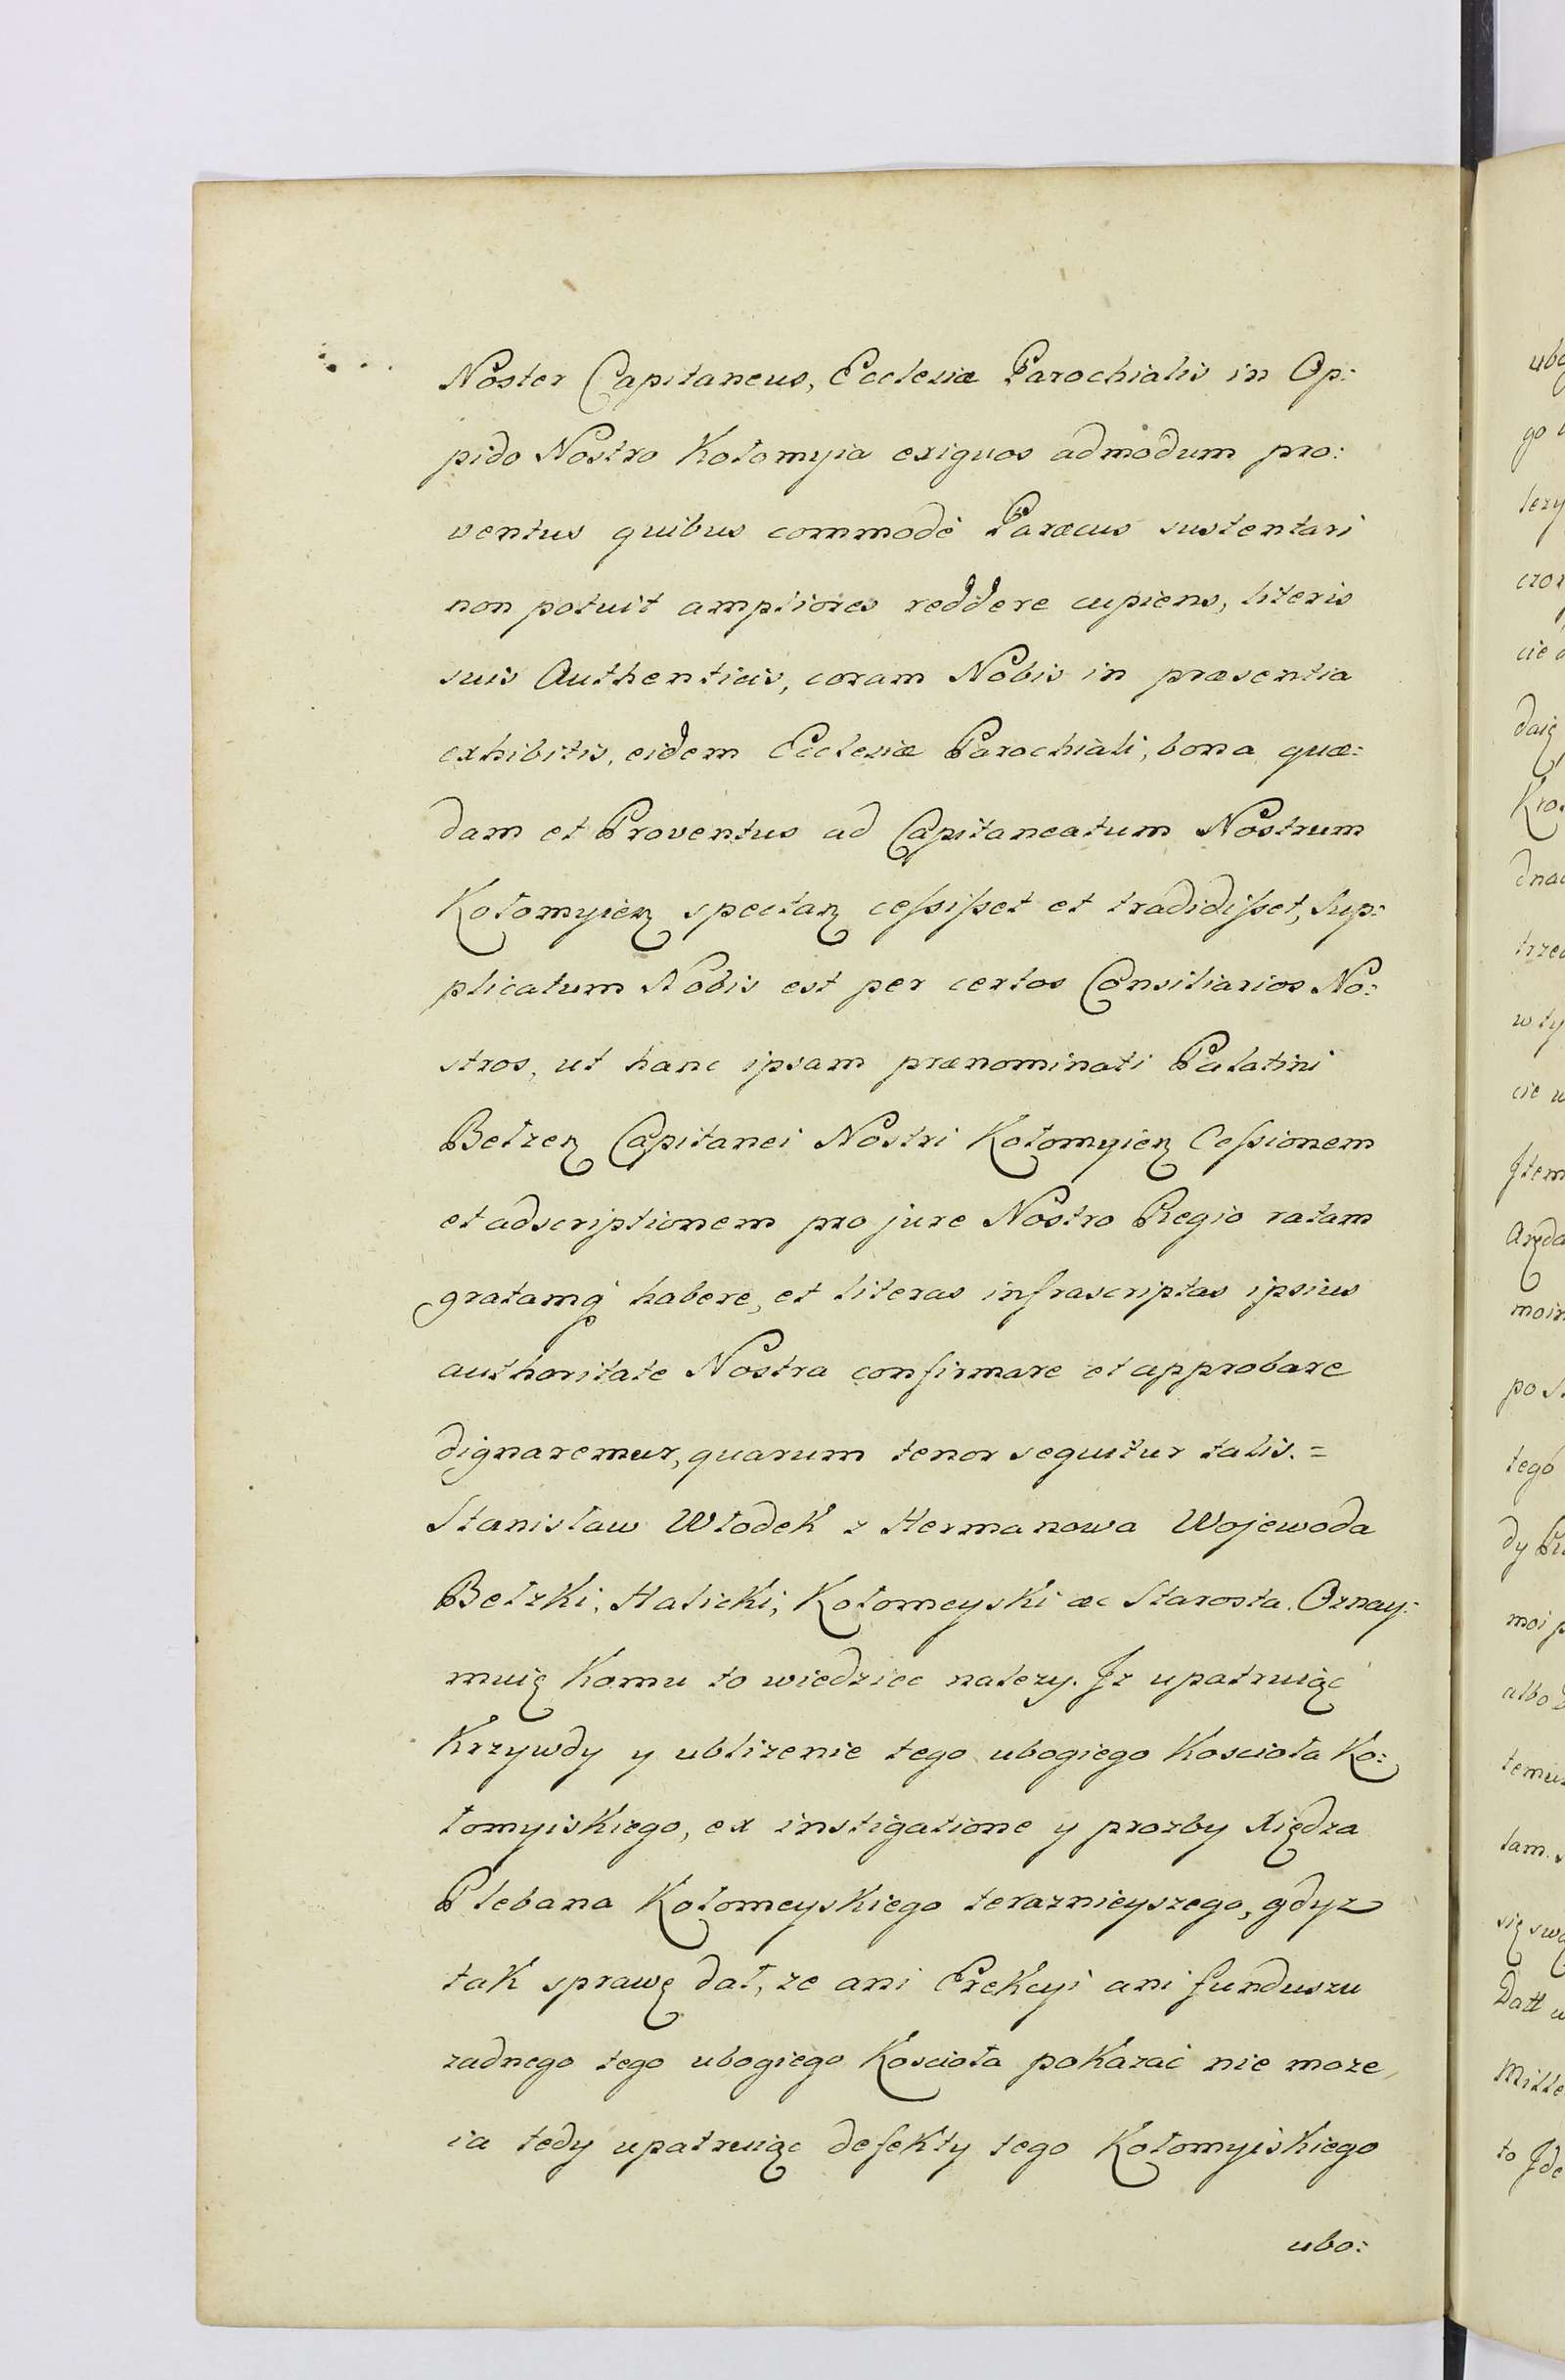 Noster Capitaneus, Ecclesiæ Parochialis in Op:
pido Nostro Kołomyia exiguos admodum pro:
ventus quibus commodè Paræcus sustentari
non potuit ampliores reddere cupiens, literis
suis Authenticis, coram Nobis in præsentia
exhibitis, eidem Ecclesiæ Parochiali, bona quæ:
dam et Proventus ad Capitaneatum Nostrum
Kołomyieꝫ spectaꝫ ceſsiſset et tradidiſset, Sup:
plicatum Nobis est per certos Consiliarios No:
stros, ut hanc ipsam prænominati Palatini
Bełzeꝫ Capitanei Nostri Kołomyieꝫ Ceſsionem
et adscriptionem pro jure Nostro Regio ratam
gratamq habere, et literas infrascriptas ipsius
authoritate Nostra confirmare et approbare
dignaremur, quarum tenor sequitur talis. =
Stanisław Włodek z Hermanowa Wojewoda
Bełzki, Halicki, Kołomeyski æc Starosta. Oznay:
muię Komu to wiedziec nalezy. Jz upatruiąc
Krzywdy y ublizenie tego ubogiego Kosciola Ko:
łomyiskiego, ex instigatione y prozby Xiędza
Plebana Kołomeyskiego teraznieyszego, gdyz
tak sprawę dał, ze ani Erekcyi ani funduszu
zadnego tego ubogiego Kosciola pokazać nie moze,
ia tedy upatruiąc defekty tego Kołomyiskiego
ubo: